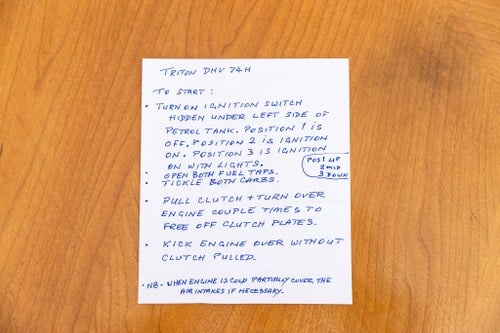 TRITON DHV 74H
TO START :
• TURN ON IGNITION SWITCH
HIDDEN UNDER LEFT SIDE OF
PETROL TANK. POSITION 1 IS
OFF. POSITION 2 IS IGNITION
ON. POSITION 3 IS IGNITION
ON WITH LIGHTS.
POS 1 UP
2 MID
3 DOWN
• OPEN BOTH FUEL TAPS.
• TICKLE BOTH CARBS.
• PULL CLUTCH + TURN OVER
ENGINE COUPLE TIMES TO
FREE OFF CLUTCH PLATES.
• KICK ENGINE OVER WITHOUT
CLUTCH PULLED.
• NB - WHEN ENGINE IS COLD PARTIALLY COVER THE
AIR INTAKES IF NECESSARY.